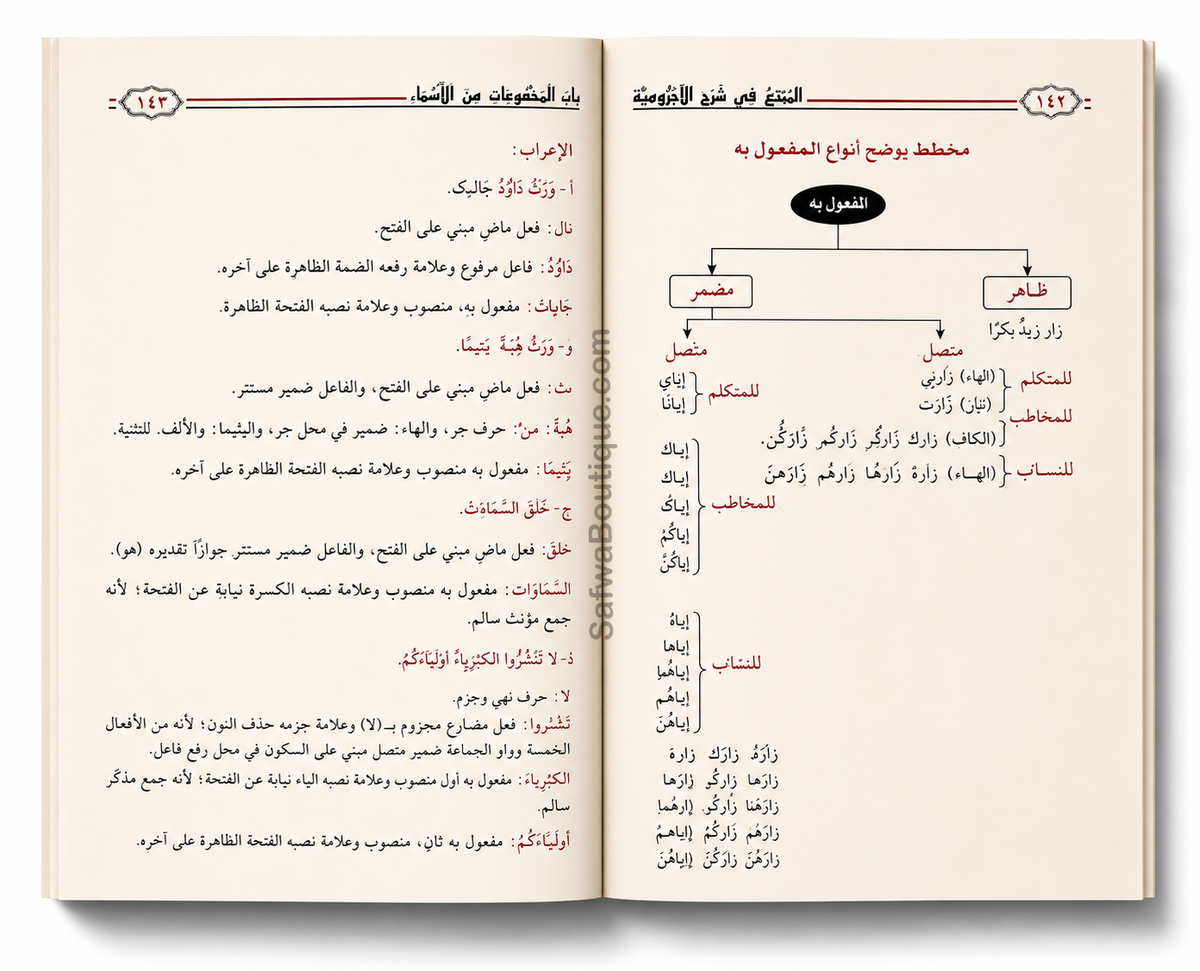 المُمْتِعُ فِي شَرْحِ الآجُرُّومِيَّة
١٤٢
مخطط يوضح أنواع المفعول به
المفعول به
ظاهر
مضمر
زار زيدُ بكرًا
متصل
للمتكلم
(الهاء) زَارني
زَارَت
للمخاطب
(الكاف) زارك زَاركُم زَارَكُن.
(الهاء) زَارهُ زَارهَا زارهُم زَارَهنَ
متصل
للمتكلم
إياي
إيانَا
للمخاطب
إياك
إياك
إياكُ
إياكُمُ
إياكُنَّ
إياهُ
إياها
إياهُما
إياهُم
إياهُنَ
زارَهُ زارَك زاره
زارَها زاركُو زارَها
زارهُم زَاركُمُ إياهمُ
زارَهُنَ زاركُنَ إياهُنَ
بابَ الْمَخْفُوعَاتِ مِنَ الْأَسْمَاءِ
١٤٣
الإعراب:
أ - وَرَّثُ دَاوُدُ
نال: فعل ماضٍ مبني على الفتح.
دَاوُدُ: فاعل مرفوع وعلامة رفعه الضمة الظاهرة على آخره.
مفعول به، منصوب وعلامة نصبه الفتحة الظاهرة.
و- وَرَثُ هِبَةً يَتيمًا.
فعل ماض مبني على الفتح، والفاعل ضمير مستتر.
هُبةً: من: حرف جر، والهاء: ضمير في محل جر، واليثيما: والألف. للتثنية.
يَثِيمَا: مفعول به منصوب وعلامة نصبه الفتحة الظاهرة على آخره.
ج- خَلَقَ
خلقَ: فعل ماضٍ مبني على الفتح، والفاعل ضمير مستتر جوازًا تقديره (هو).
السَّمَاوَات: مفعول به منصوب وعلامة نصبه الكسرة نيابةِ عن الفتحة؛ لأنه
جمع مؤنث سالم.
لا تَنْشُرُوا الكبْرِياءً أوْلَيَآءَكُمُ.
لا: حرف نهي وجزم.
تَشُروا: فعل مضارع مجزوم بـ(لا) وعلامة جزمه حذف النون؛ لأنه من الأفعال
الخمسة وواو الجماعة ضمير متصل مبني على السكون في محل رفع فاعل.
الكبْرِياءَ: مفعول به أول منصوب وعلامة نصبه الياء نيابة عن الفتحة؛ لأنه جمع مذكّر
سالم.
أولَيَّاءَكُمُ: مفعول به ثانٍ، منصوب وعلامة نصبه الفتحة الظاهرة على آخره.
SafwaBoutique.com